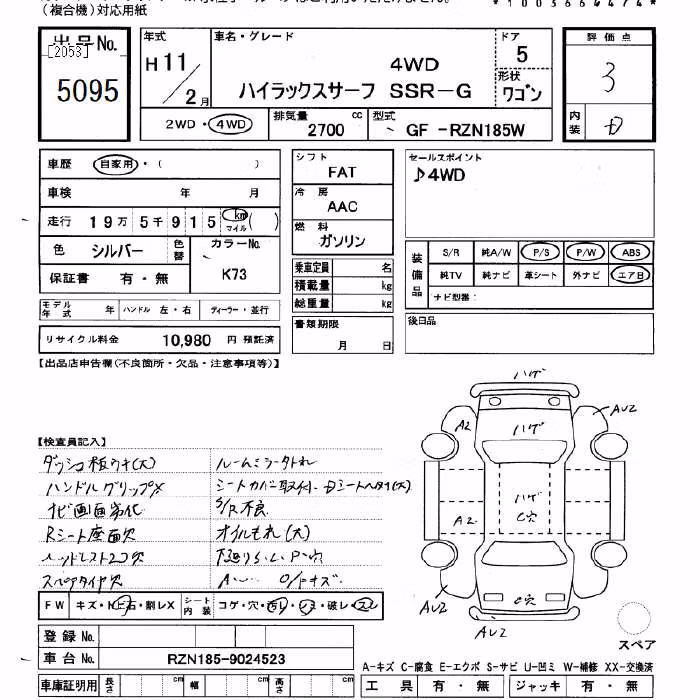 (複合機)対応用紙
*1003664474*
出品No.
[2053]
5095
年式
H11/2月
車名・グレード
4WD
ハイラックスサーフ SSR-G
ドア
5
形状
ワゴン
評価点
3
内装
D
2WD・4WD
排気量
2700 cc
型式
GF -RZN185W
車歴
自家用・( )
車検 年 月
走行 19万5千915 km マイル ( )
色 シルバー 色替
カラーNo.
K73
保証書 有・無
シフト
FAT
冷房
AAC
燃料
ガソリン
乗車定員 名
積載量 kg
総重量 kg
セールスポイント
♪4WD
装備品
S/R 純A/W P/S P/W ABS
純TV 純ナビ 革シート 外ナビ エアB
ナビ型番:
モデル年式 年 ハンドル 左・右 ディーラー・並行
リサイクル料金 10,980 円 預託済
書類期限
月 日
後日品
【出品店申告欄(不良箇所・欠品・注意事項等)】
【検査員記入】
ダッシュ板ワレ(大)
ハンドルグリップX
ナビ画面劣化
Rシート座面穴
ヘッドレスト2コ欠
スペアタイヤ欠
ルームミラー外れ
S/R不良
オイルもれ(大)
ハゲ
ハゲ
ハゲ
C穴
C穴
A2
A2
AU2
AU2
AU2
AU2
スペア
FW キズ・飛石・割レX
シート内装 コゲ・穴・汚レ・シミ・破レ・スレ
登録No.
車台No. RZN185-9024523
車庫証明用 長さ cm 幅 cm 高さ cm
A-キズ C-腐食 E-エクボ S-サビ U-凹ミ W-補修 XX-交換済
工具 有・無 ジャッキ 有・無